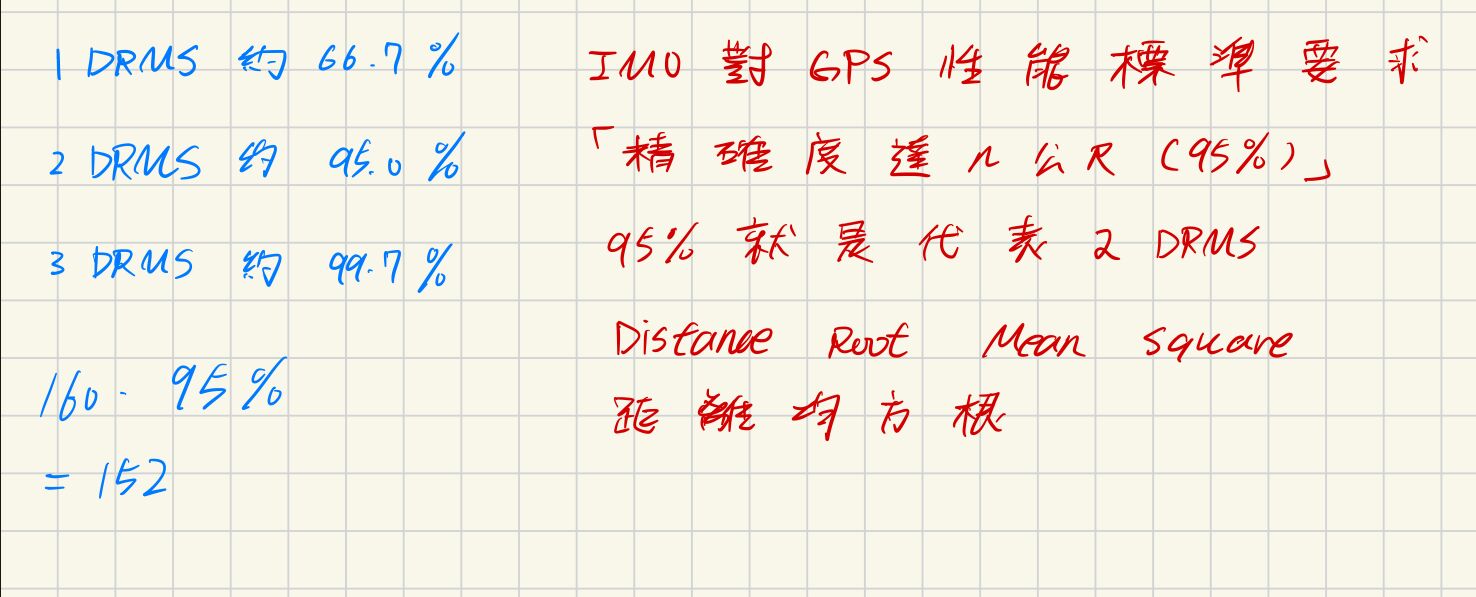 1 DRMS 約 66.7 %
2 DRMS 約 95.0 %
3 DRMS 約 99.7 %
160 · 95 %
= 152
IMO 對 GPS 性能標準要求
「精確度達 n 公尺 (95%)」
95% 就是代表 2 DRMS
Distance Root Mean Square
距離均方根